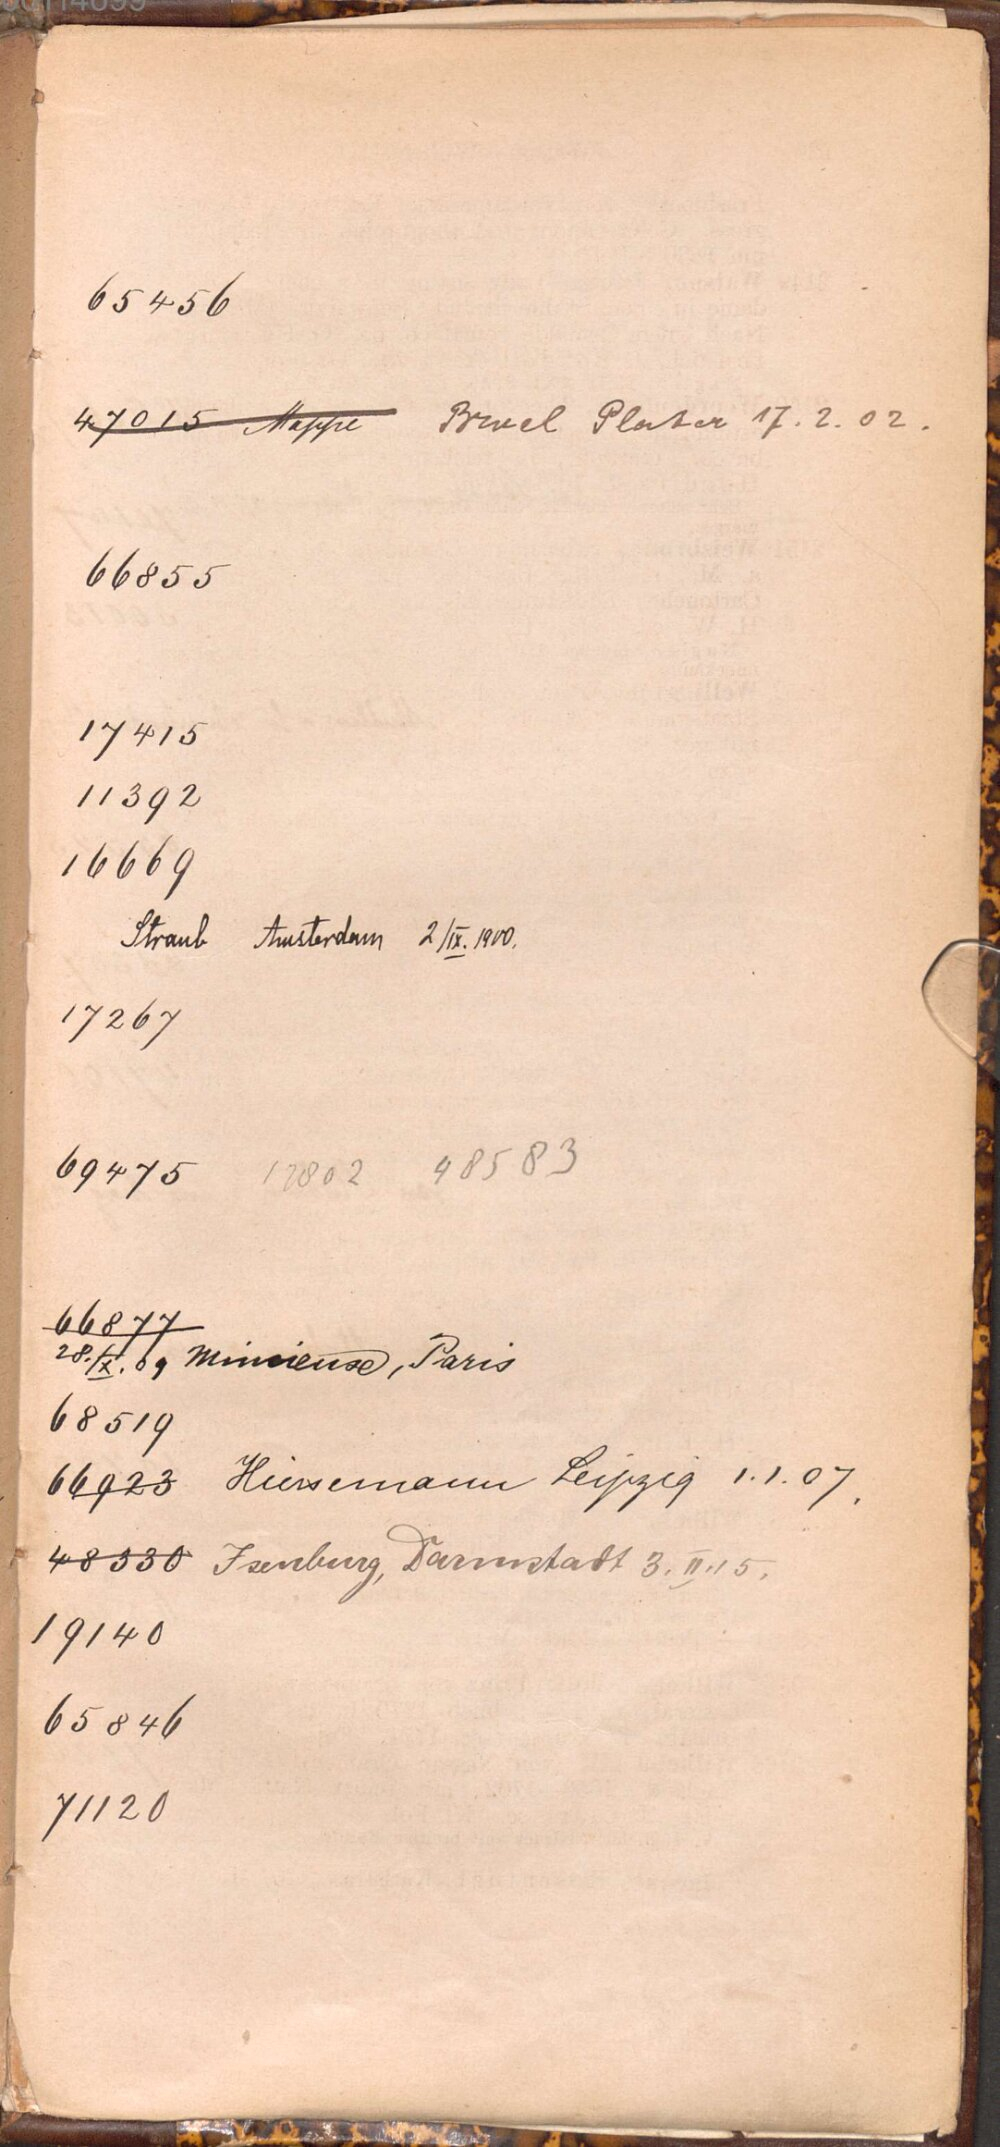 65456
47015 Mappe Plater 17. 2. 02.
66855
17415
11392
16669
Straub Amsterdam 2/IX. 1900.
17267
69475 17802 48583
66877
28./IX. 09 Paris
68519
66923 Hiersemann Leipzig 1. 1. 07.
48330 Isenburg, Darmstadt 3. II. 15.
19140
65846
71120